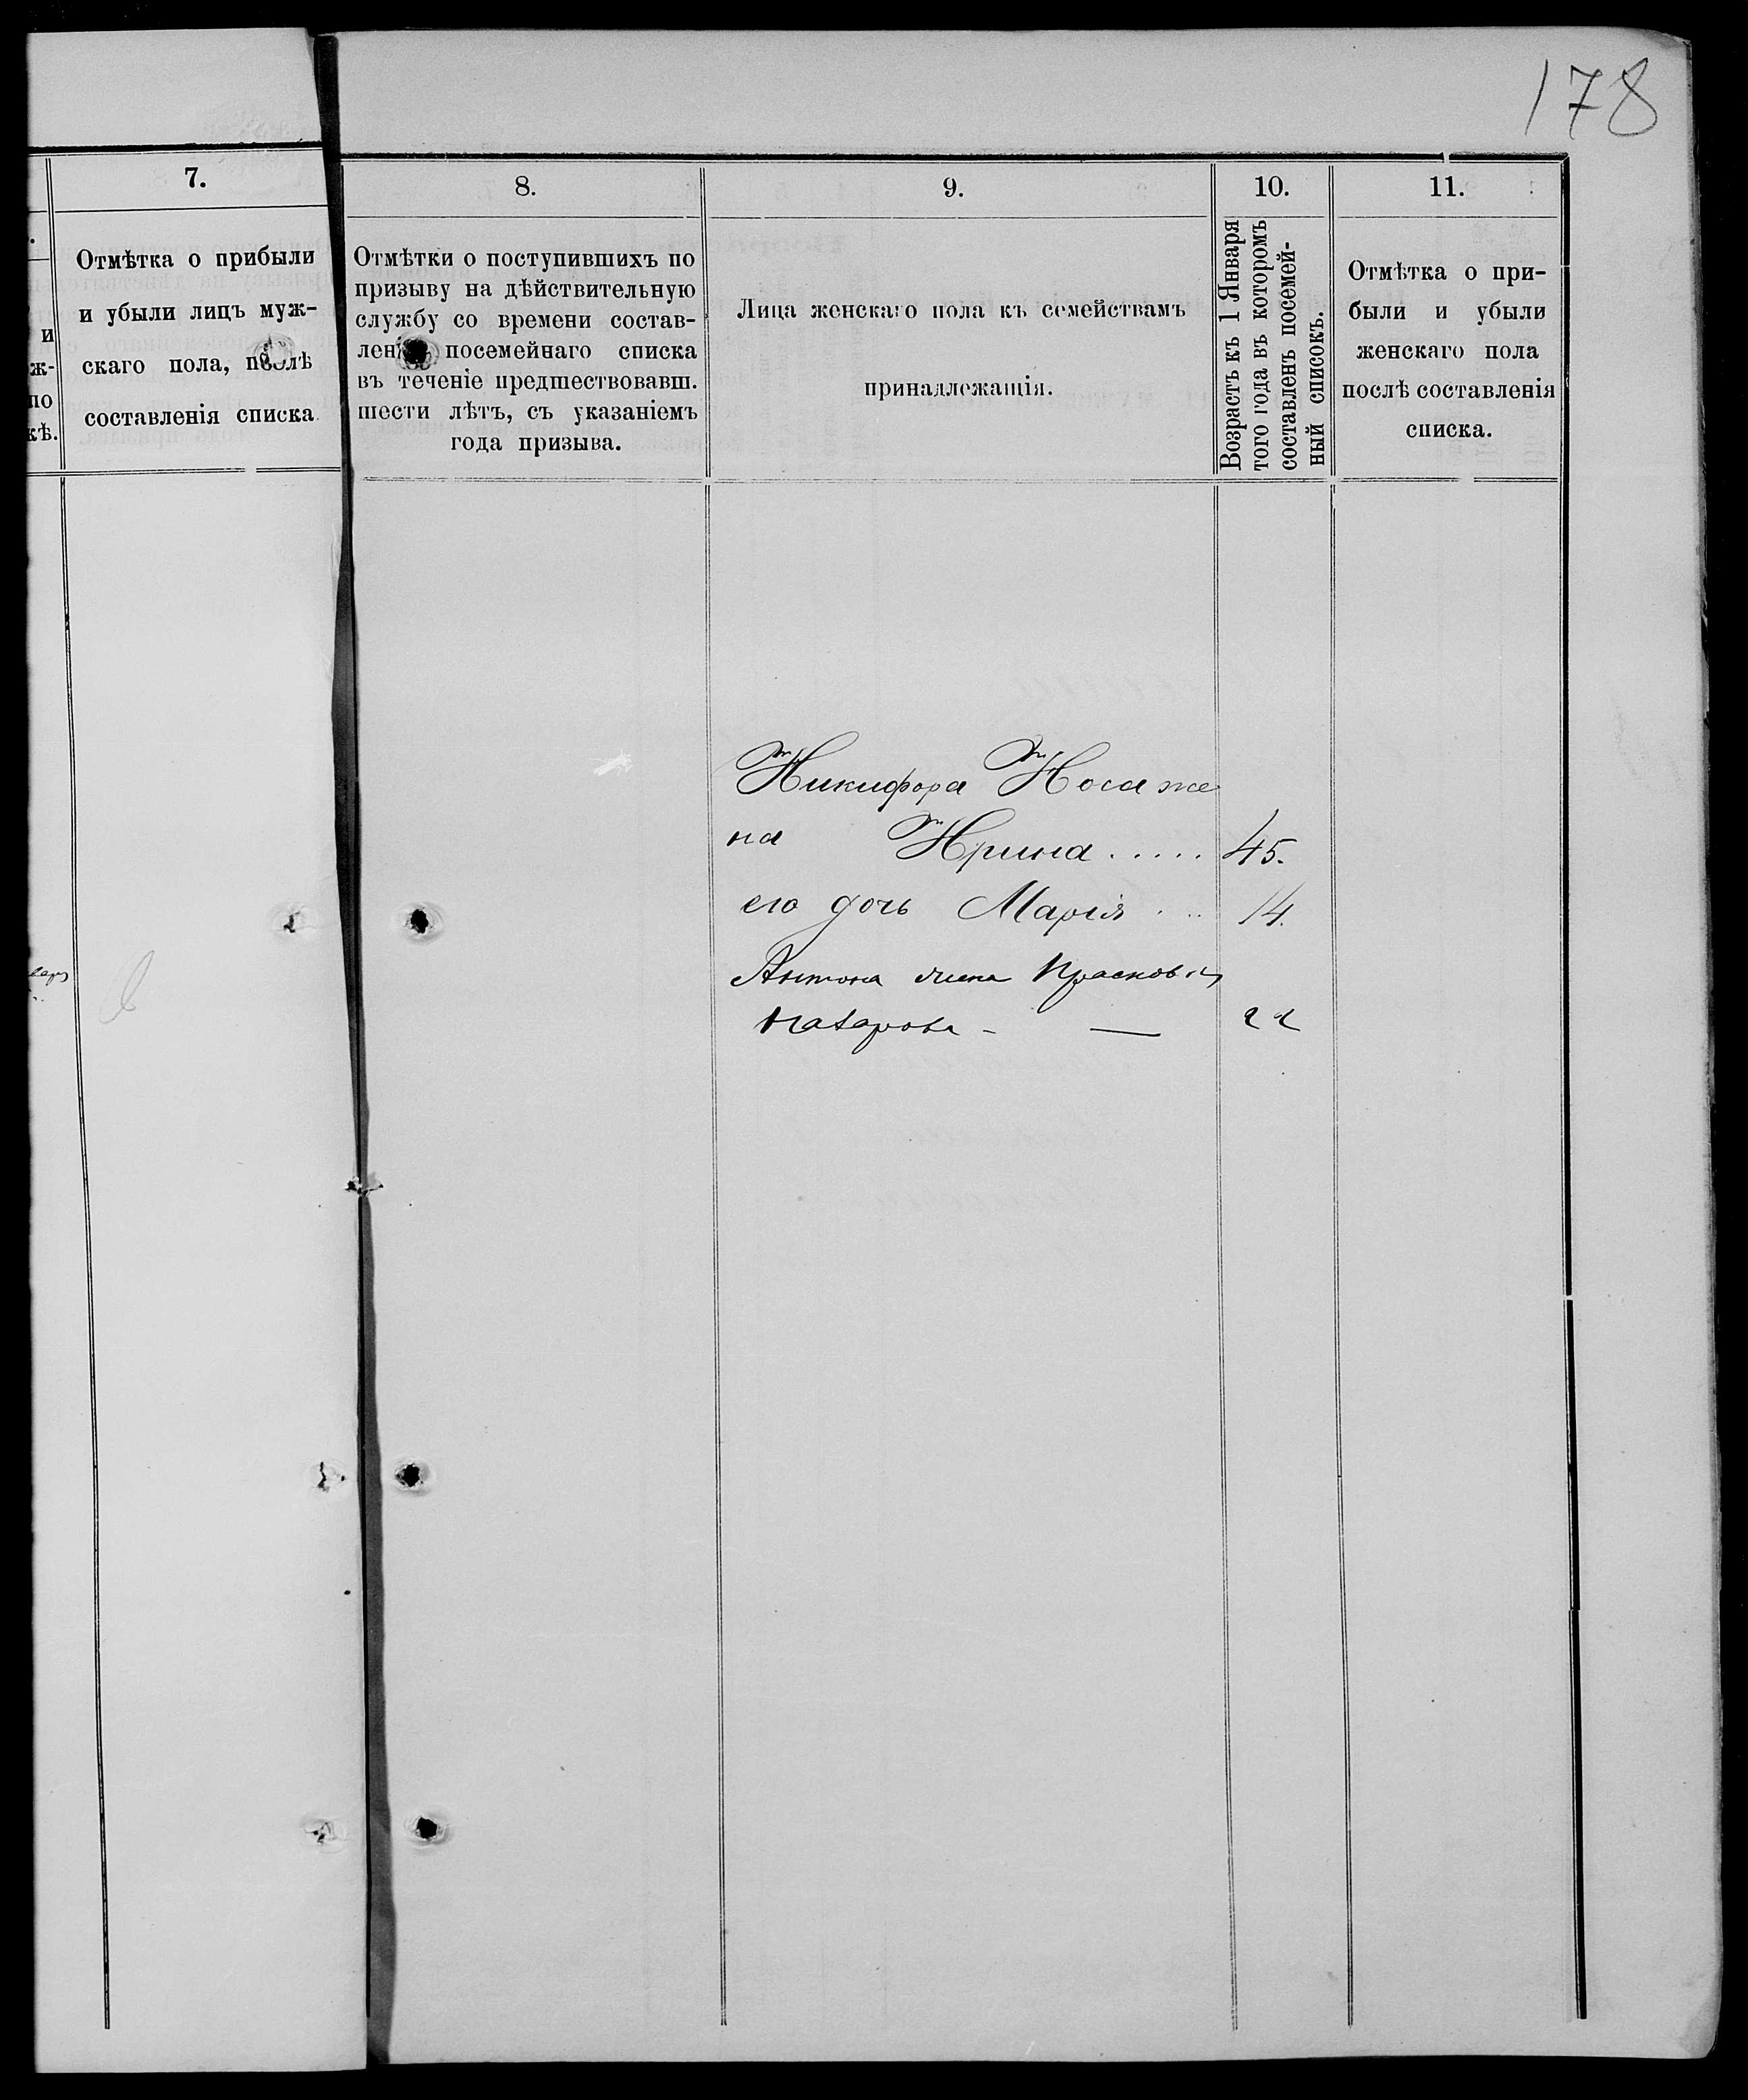 178
7.
8.
9.
10.
11.
и
ж-
по
кѣ.
Отмѣтка о прибыли
и убыли лицъ муж-
скаго пола, послѣ
составленія списка
Отмѣтки о поступившихъ по
призыву на дѣйствительную
службу со времени состав-
ленія посемейнаго списка
въ теченіе предшествовавш.
шести лѣтъ, съ указаніемъ
года призыва.
Лица женскаго пола къ семействамъ
принадлежащія.
Возрастъ къ 1 Января
того года въ которомъ
составленъ посемей-
ный списокъ.
Отмѣтка о при-
были и убыли
женскаго пола
послѣ составленія
списка.
Никифора Носа же
на Ирина ..... 45.
его дочь Марія ... 14.
Антона жена Прасковія
Назарова - — 22